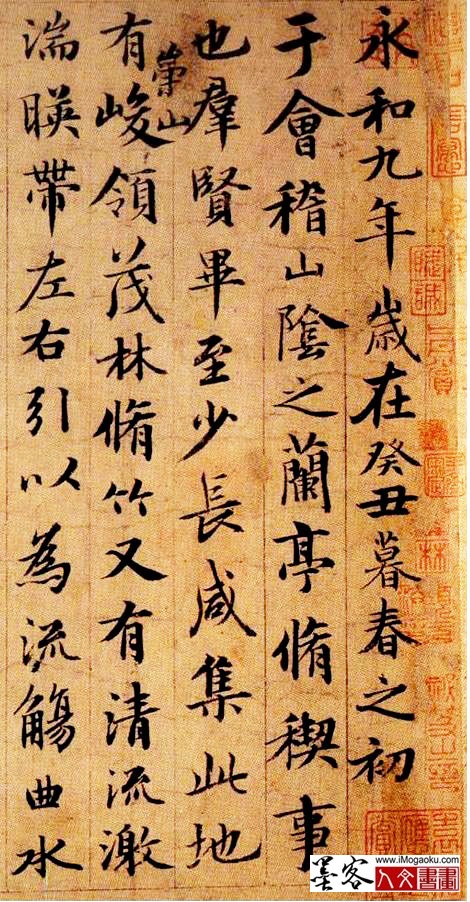 永和九年歲在癸丑暮春之初
于會稽山陰之蘭亭脩稧事
也羣賢畢至少長咸集此地
有崇山峻領茂林脩竹又有清流激
湍暎帶左右引以為流觴曲水
www.iMogaoku.com
墨客
人文書畫